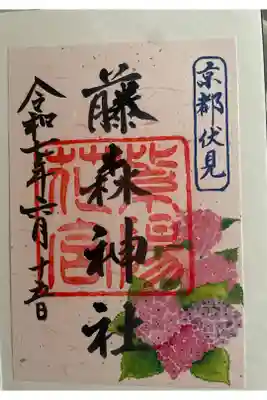 京都伏見
藤森神社
紫陽
花宮
令和六年六月十五日